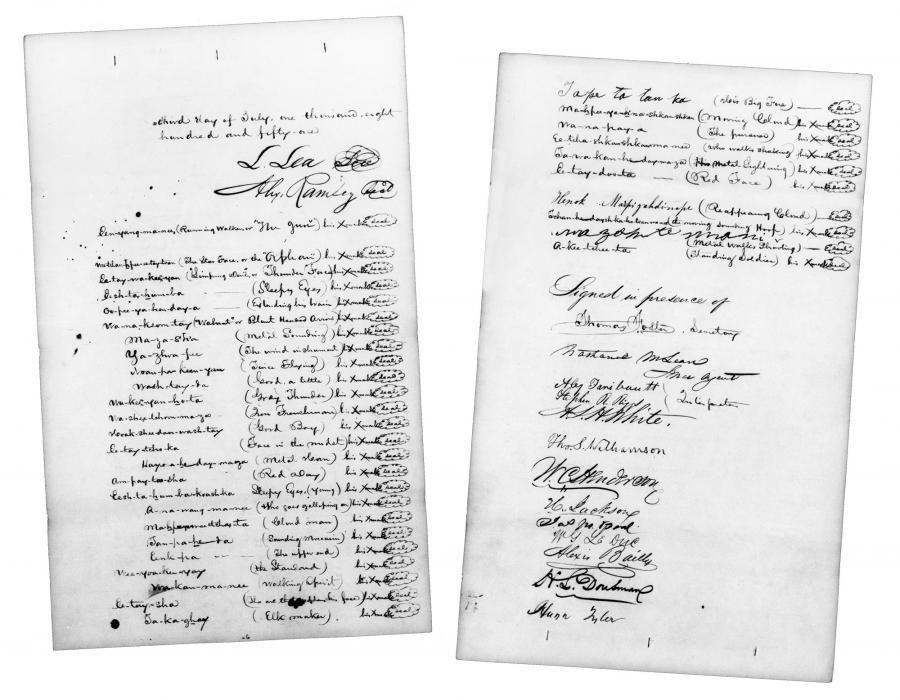 third day of July, one thousand eight
hundred and fifty-one
L. Lea Seal
Alex. Ramsey Seal
Een-yang-ma-nee, (Running Walker, or "The Gun") his X mark seal
(The Star Face, or the "Orphan") his X mark seal
Ee-tay-wa-keen-yan ("Limping Devil", or Thunder Face) his X mark seal
Eesh-ta-hum-ba (Sleepy Eyes) his X mark seal
Oo-pee-ya-hen-day-a (Extending his train) his X mark seal
("Walnut" or Blunt Headed Arrow) his X mark seal
Ma-za-sha (Metal Sounding) his X mark seal
Ya-zhoo-pee (The wind instrument) his X mark seal
(Twice Flying) his X mark seal
Wash-tay-da (Good, a little) his X mark seal
Wa-keen-yan-ho-ta (Gray Thunder) his X mark seal
(Iron Frenchman) his X mark seal
Hok-shee-dan-wash-tay (Good Boy) his X mark seal
Ee-tay-tcho-ka (Face in the midst) his X mark seal
Hay-ha-hen-day-ma-za (Metal Horn) his X mark seal
Am-pay-too-sha (Red Day) his X mark seal
Eesh-ta-hum-ba-koash-ka (Sleepy Eyes, (young) his X mark seal
A-na-wang-ma-nee (Who goes galloping on) his X mark seal
(Cloud man) his X mark seal
Tan-pa-hee-da (Sounding Moccasin) his X mark seal
Eenk-pa (The upper end) his X mark seal
Wee-yoa-kee-yay (The Standard) his X mark seal
Wa-kan-ma-nee (Walking Spirit) his X mark seal
Ee-tay-sha (The one that reddens his face) his X mark seal
Ta-ka-ghay (Elk maker) his X mark seal
Ta pe ta tan ka (His Big Fire) seal
(Moving Cloud) his X mark seal
Wa-na-pay-a (The pursuer) his X mark seal
Ee-tcha-shkan-shkan-ma-nee (Who walks shaking) his X mark seal
Ta-wa-kan-he-day-ma-za (His Metal Lightning) his X mark seal
Ee-tay-doo-ta (Red Face) his X mark seal
Henok Marpiyahdinape (Reappearing Cloud) seal
the moving sounding Harp) his X mark seal
Mazapte mani (Metal Walks Shooting) seal
A-kee-tchee-ta (Standing Soldier) his X mark seal
Signed in presence of
Thomas Foster, Secretary
Nathaniel McLean
Indian Agent
Alex Faribault
Stephen R. Riggs Interpreters
A. S. H. White.
Tho. S. Williamson
W. C. Henderson
A. Jackson
W. G. Le Duc
Alexis Bailly
H. L. Dousman
Hugh Tyler